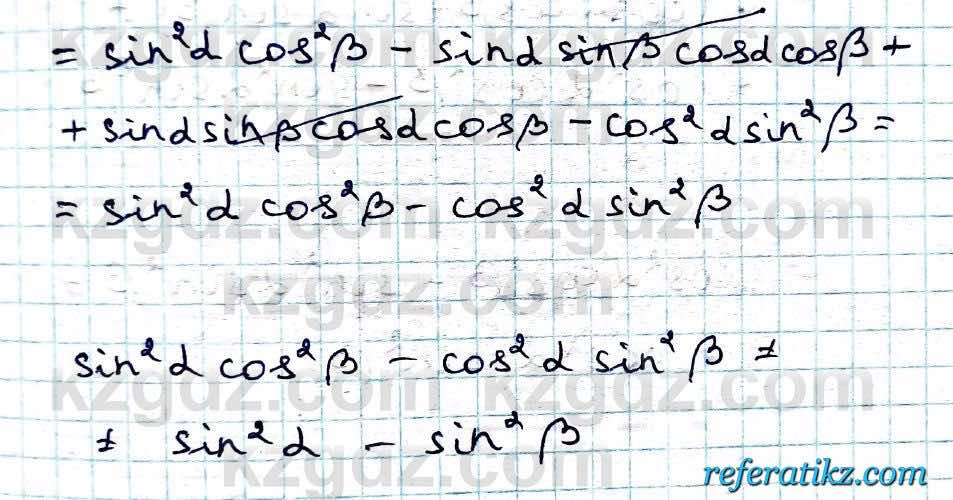 = sin²α cos²β - sinα sinβ cosα cosβ +
+ sinα sinβ cosα cosβ - cos²α sin²β =
= sin²α cos²β - cos²α sin²β
kzgdz.com
sin²α cos²β - cos²α sin²β ≠
≠ sin²α - sin²β
referatikz.com